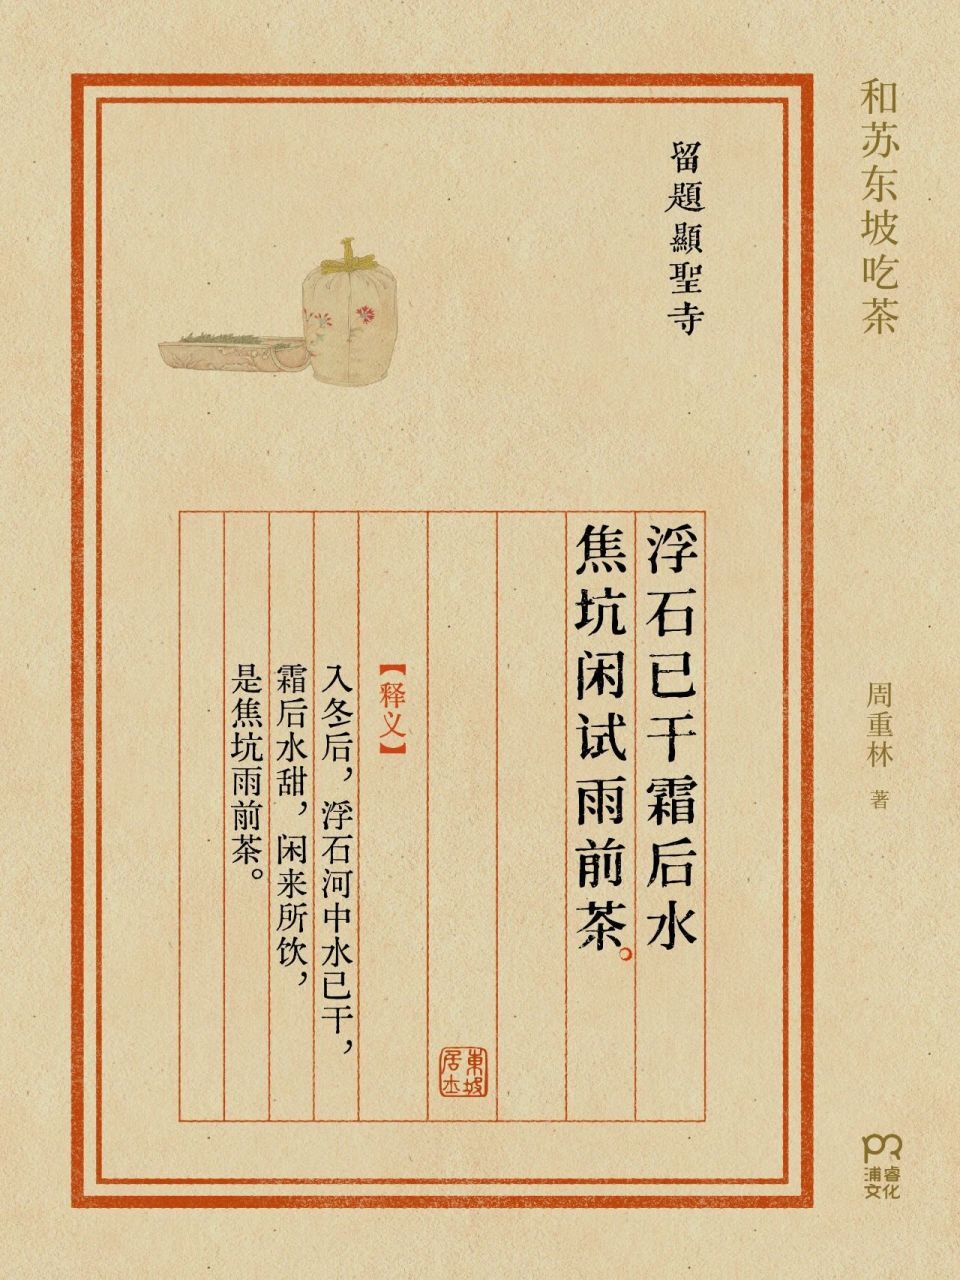 和苏东坡吃茶
周重林 著
留題顯聖寺
浮石已干霜后水
焦坑闲试雨前茶。
東坡
居士
【释义】
入冬后，浮石河中水已干，
霜后水甜，闲来所饮，
是焦坑雨前茶。
浦睿
文化